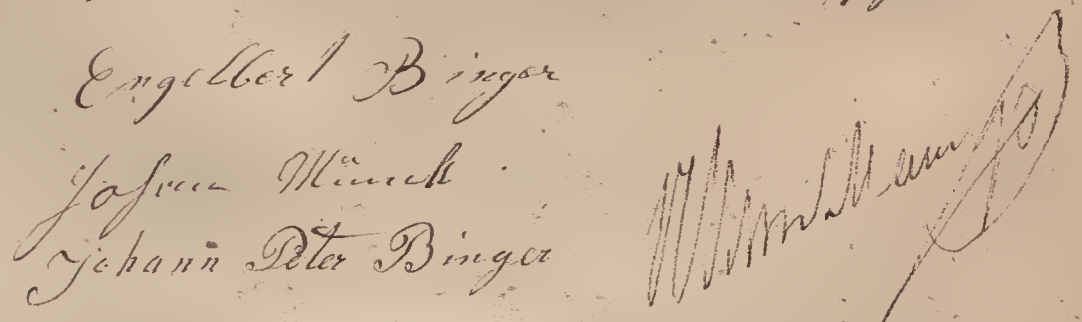 Engelbert Binger
Johann Münch
Johann Peter Binger